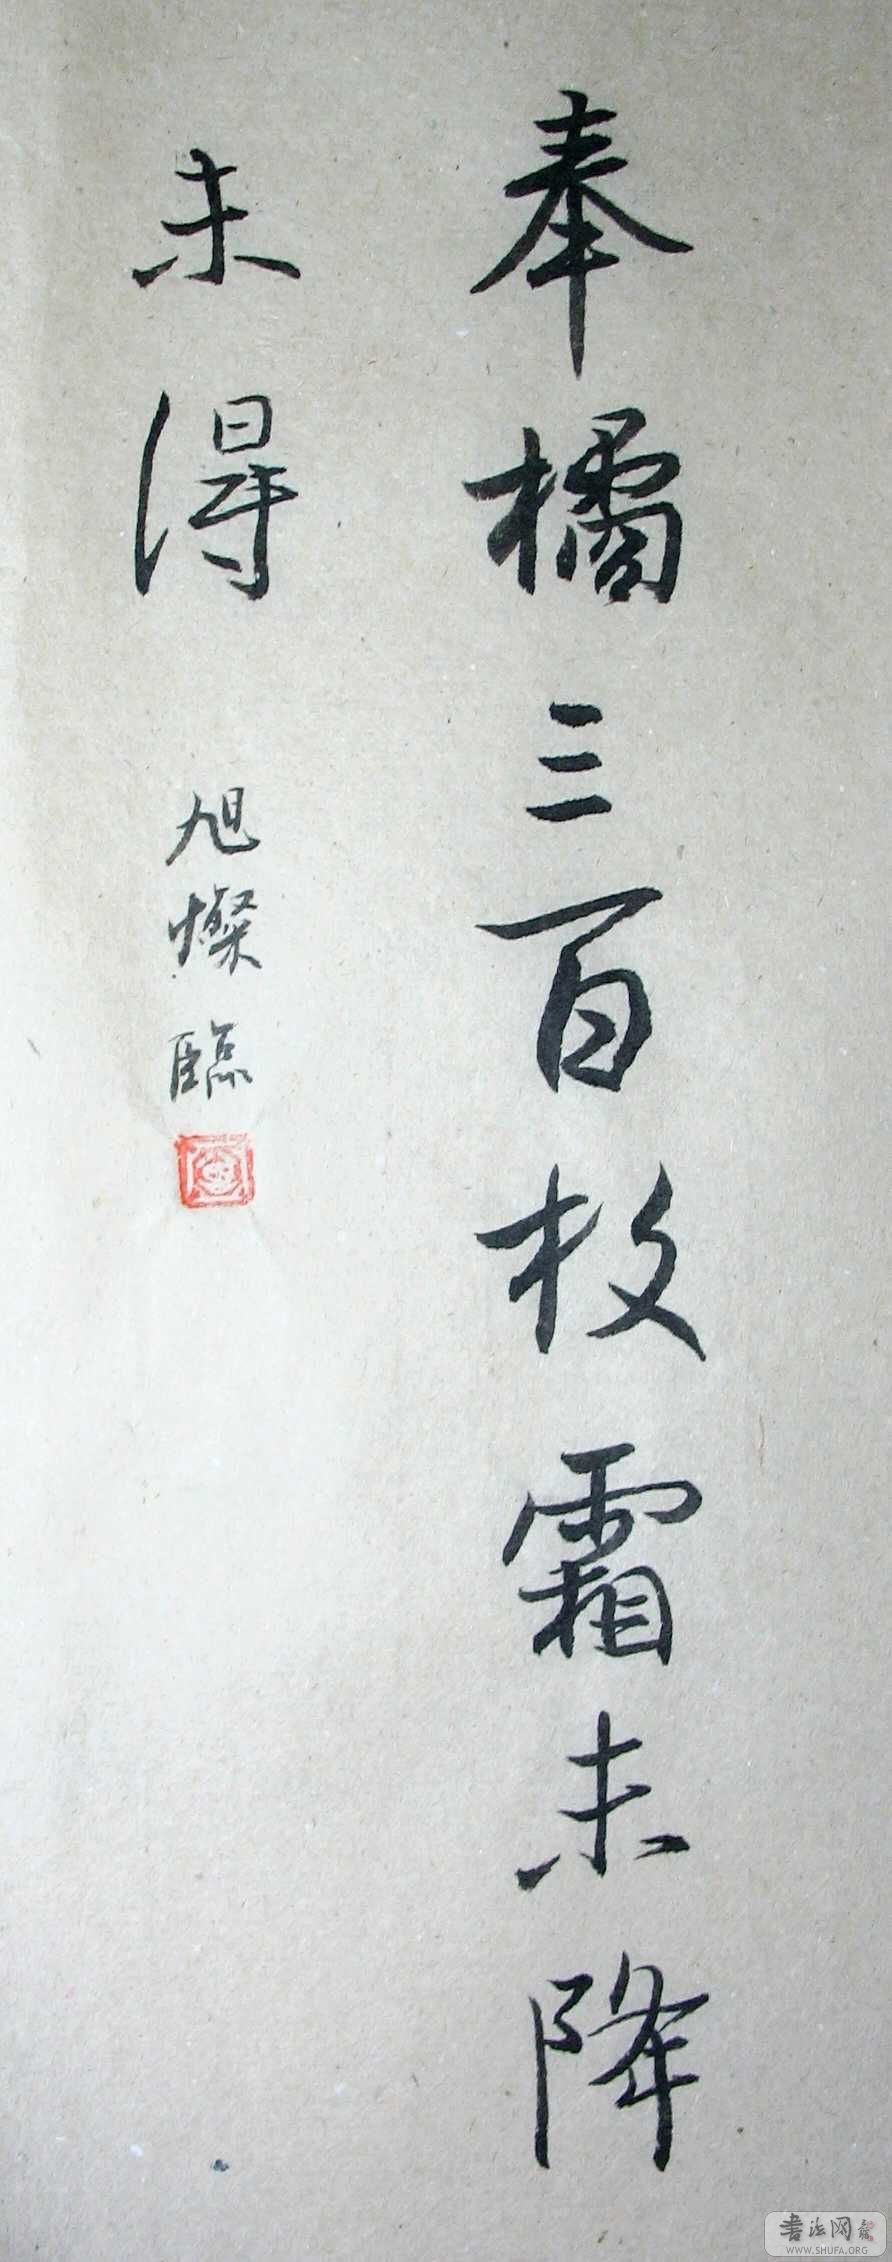 奉橘三百枚霜未降
未得
旭燦臨
書法网
WWW.SHUFA.ORG